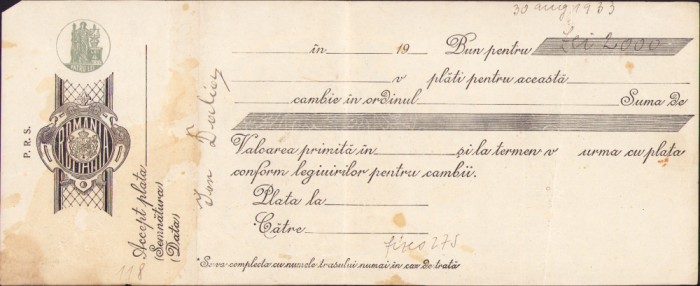 30 aug 1933
în 19 Bun pentru Lei 2000
v plăti pentru această
cambie în ordinul Suma de
Valoarea primită în și la termen v urma cu plata
conform legiuirilor pentru cambii.
Plata la
Către
fisco 275
*Se va complecta cu numele trasului numai în caz de trată
P. R. S.
ROMANIA
Accept plata
(Semnătura)
(Data)
118
Ion